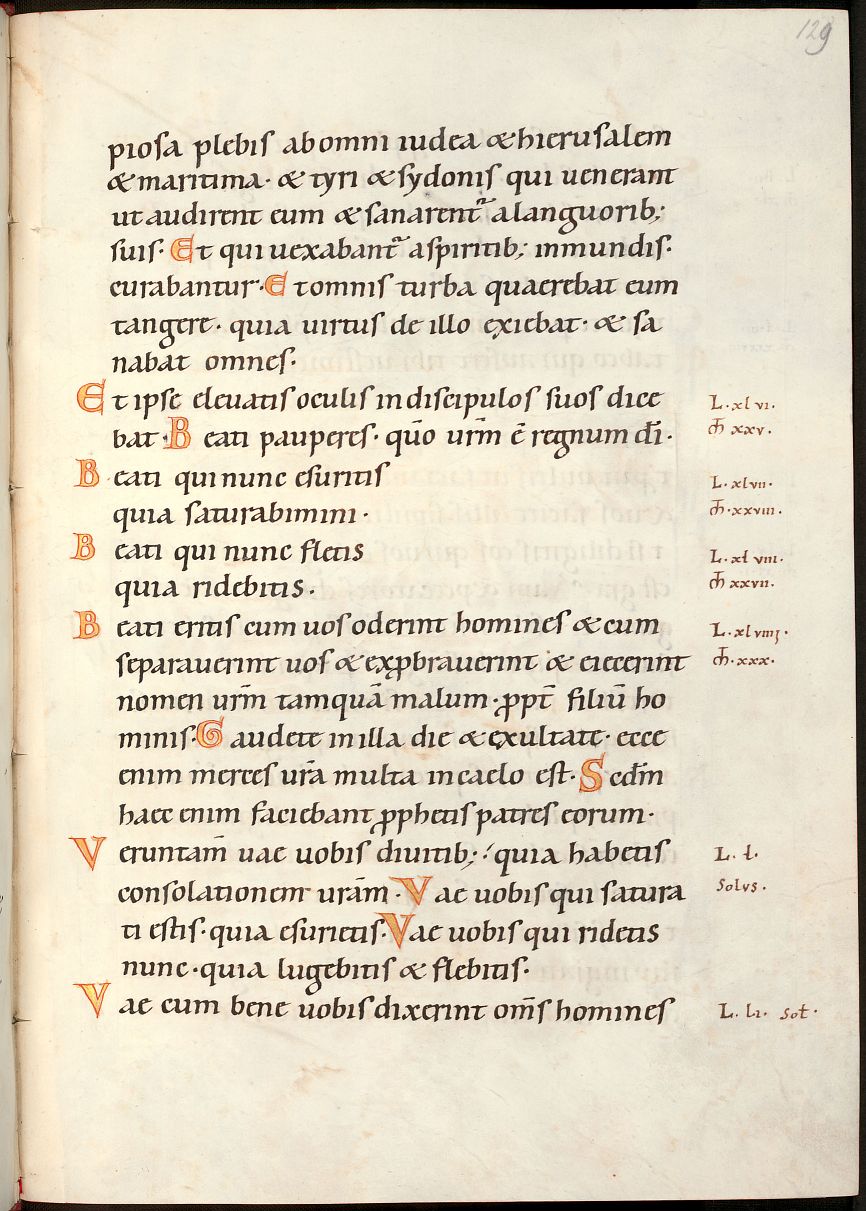 129
piosa plebis ab omni iudea & hierusalem
& maritima· & tyri & sydonis qui uenerant
ut audirent eum & sanarent᷑ a languorib;
suis· Et qui uexabant᷑ a spiritib; inmundis·
curabantur· Et omnis turba quaerebat eum
tangere· quia uirtus de illo exiebat· & sa
nabat omnes·
Et ipse eleuatis oculis in discipulos suos dice
bat· Beati pauperes· quō urm̄ ē regnum dī·
L·xlvi·
m̄ xxv·
Beati qui nunc esuritis
quia saturabimini·
L·xlvii·
m̄·xxviii·
Beati qui nunc fletis
quia ridebitis·
L·xlviii·
m̄ xxvii·
Beati eritis cum uos oderint homines & cum
separauerint uos & exp̱brauerint & eiecerint
nomen urm̄ tamquā malum· ꝓpt̄ filiū ho
minis· Gaudete in illa die & exultate· ecce
enim merces ur̄a multa in caelo est· Sedm̄
haec enim faciebant ꝓphetis patres eorum·
L·xlviiij·
m̄·xxx·
Veruntam̄ uae uobis diuitib; quia habetis
consolationem urām· Vae uobis qui satura
ti estis· quia esurietis· Vae uobis qui ridetis
nunc· quia lugebitis & flebitis·
L· l·
Solvs·
Vae cum bene uobis dixerint om̄s homines
L· li· Sol̄·